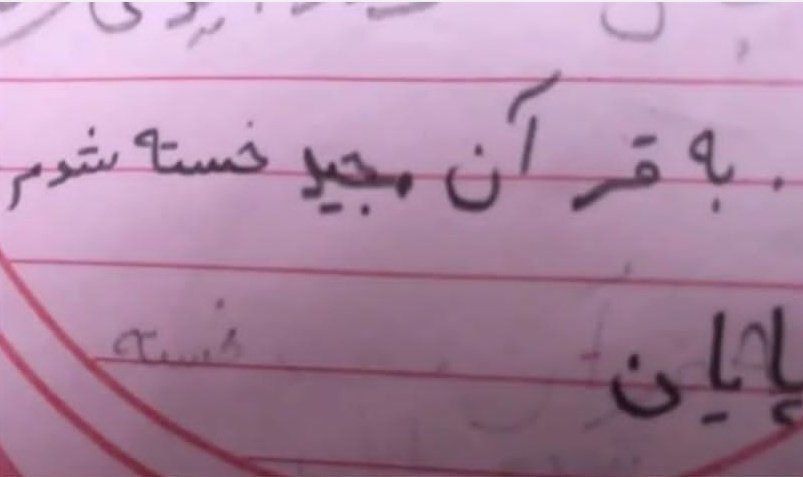 به قرآن مجید خسته شدم
پایان
خسته